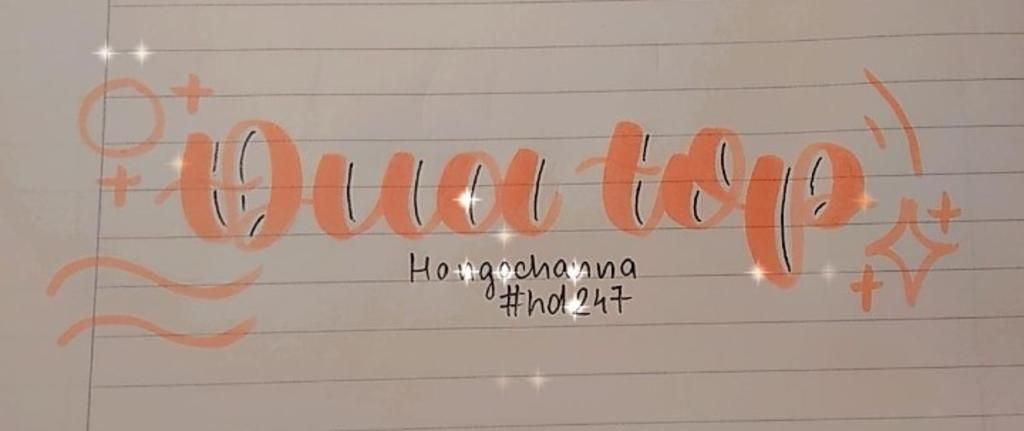 Đua top
Hongochanna
#hd247